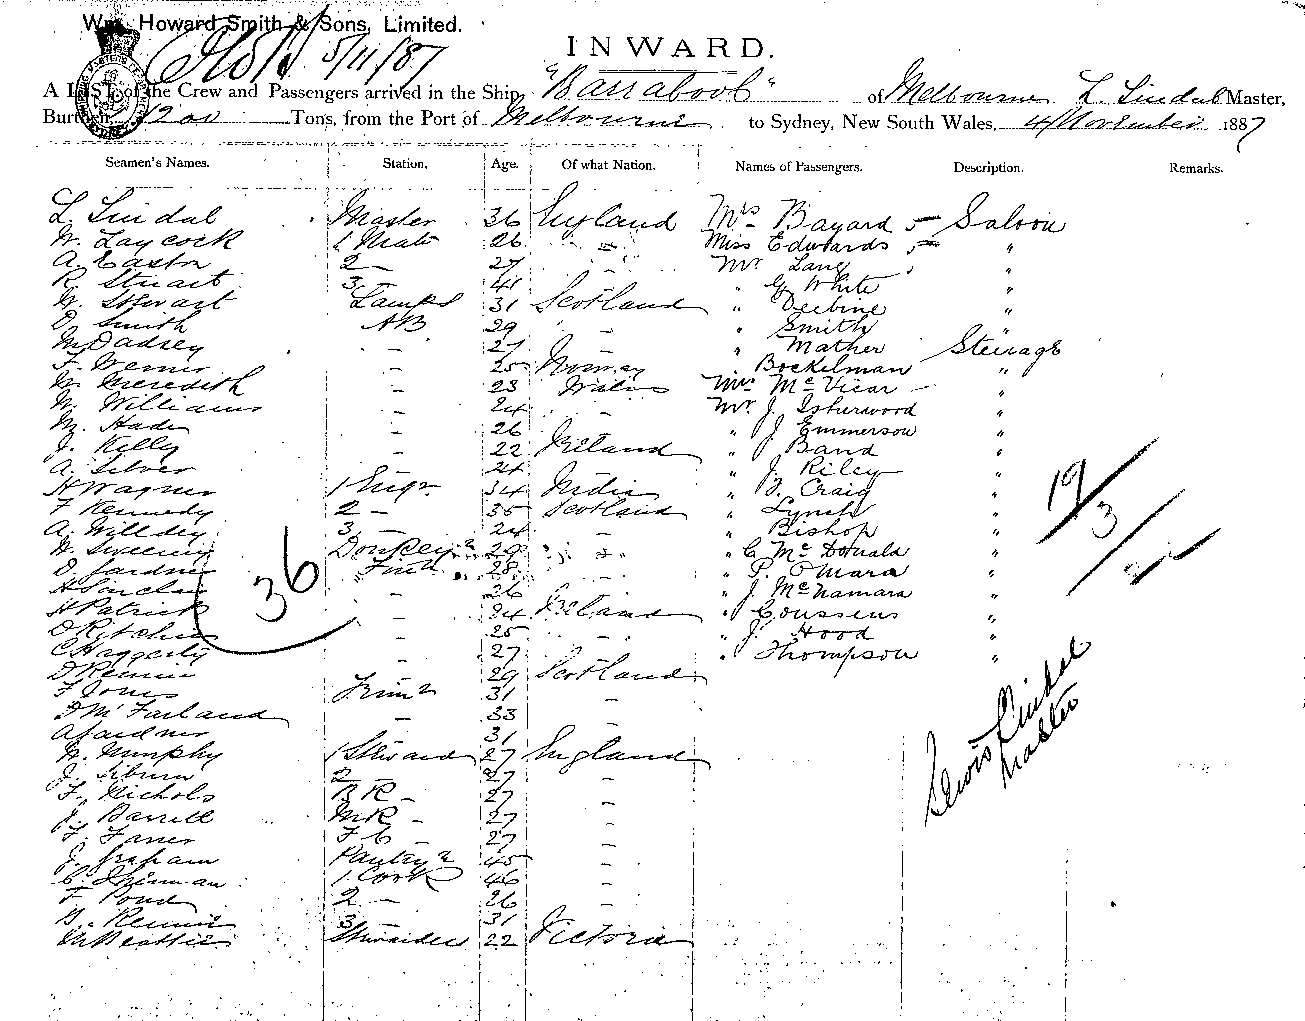 Wm. Howard Smith & Sons, Limited.
5/11/87
INWARD.
A LIST of the Crew and Passengers arrived in the Ship "Barrabool" of Melbourne L. Lindal Master,
Burthen 1200 Tons, from the Port of Melbourne to Sydney, New South Wales, 4 November 1887
Seamen's Names. Station. Age. Of what Nation. Names of Passengers. Description. Remarks.
L. Lindal Master 36 England Mrs Bayard 5 - Saloon
W. Laycock 1 Mate 26 " - Miss Edwards 5 - "
A. 2 - 27 - Mr Lang "
R. Stuart 3 - 41 - " G White "
W. Stewart Lamps 31 Scotland " Deebine "
D. Smith AB 29 " - " Smith "
M. Dadsey - 27 - " Mather Steerage
F. - 25 Norway Bockelman "
W. Meredith - 23 Wales Mrs McVicar - "
W. Williams - 24 - Mr J. Isherwood "
M. - 26 - " J Emmerson "
J. Kelly - 22 Ireland " Band "
A. Silver - 24 - " J. Riley "
H Wagner 1 Engr. 34 India " Craig "
F Kennedy 2 - 35 Scotland " Lynch "
A. 3 - 24 - " Bishop "
W. Sweeny Donkeyn 29 " C McDonald "
D. Gardner Firen 28 - " P. O'Mara "
H Sinclair - 26 - " J. McNamara "
H Patrick - 24 Ireland " Coussens "
D Ritchie - 25 - " J. Hood "
C Haggerty - 27 - " Thompson "
D Rennie - 29 Scotland
F Jones Trimr 31 -
D McFarland - 33 -
A Gardner - 31 -
W. Murphy 1 Steward 27 England
J. 2 - 27 -
F. Nichols BR - 27 -
J. Barrell MR - 27 -
F. FC - 27 -
J. Graham Pantryn 45 -
C. 1 Cook 46 -
F Pond 2 - 26 -
Rennie 3 - 31 -
Beattie Stewardess 22 Victoria
36
19
3
22
Lewis Lindal
Master